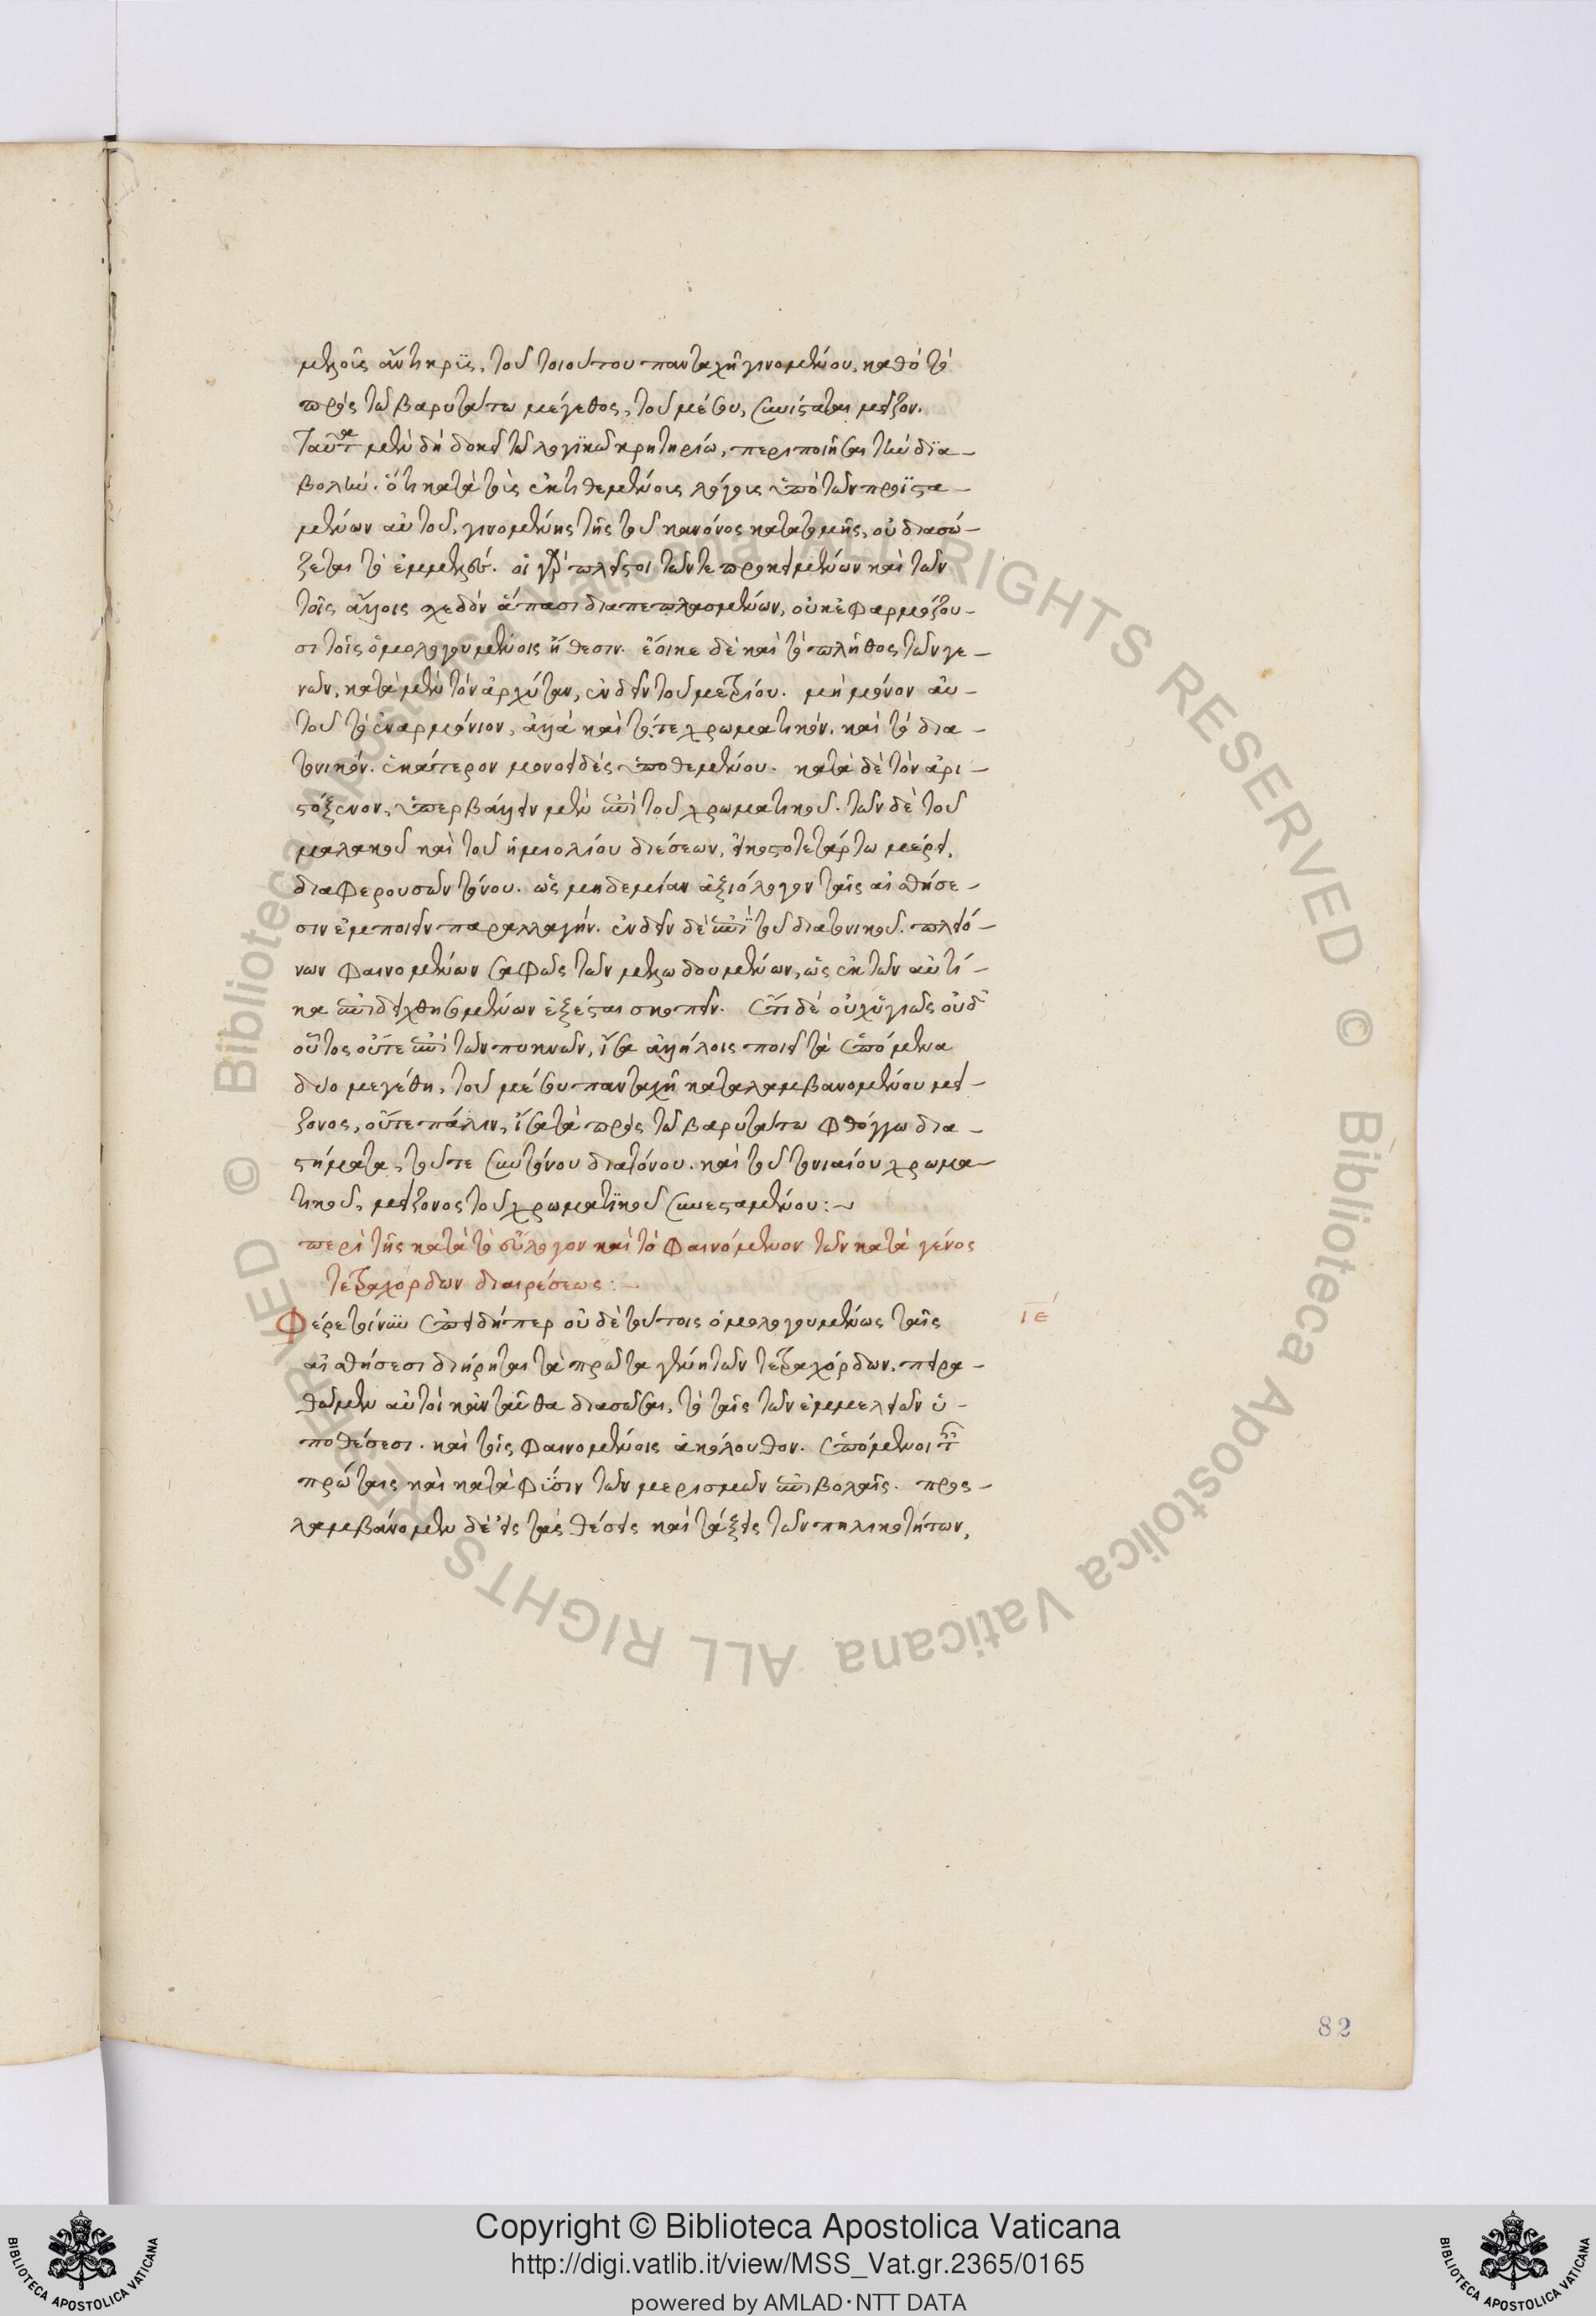 μελοῦς ἄντικρϋς, τοῦ τοιούτου πανταχῆ γινομένου, καθὸ τὸ
πρὸς τῶ βαρυτάτω μέγεθος, τοῦ μέσου, συνίσταται μεῖζον.
Ταῦτα μὲν δὴ δοκεῖ τῶ λογικῶ κριτηρίω, περιποιῆσαι τὴν δια-
βολήν. ὅτι κατὰ τοὺς ἐκτιθεμένους λόγους ὑπὸ τῶν προϊστα-
μένων αὐτοῦ, γινομένης τῆς τοῦ κανόνος κατατομῆς, οὐ διασώ-
ζεται τὸ ἐμμελές. οἱ γὰρ πλεῖστοι τῶν τε προκειμένων καὶ τῶν
τοῖς ἄλλοις σχεδὸν ἅπασι διαπεπλασμένων, οὐκ ἐφαρμόζου-
σι τοῖς ὁμολογουμένοις ἤθεσιν. ἔοικε δὲ καὶ τὸ πλῆθος τῶν γε-
νῶν, κατὰ μὲν τὸν ἀρχύταν, ἐνδεῖν τοῦ μετρίου. μὴ μόνον αὐ-
τοῦ τὸ ἐναρμόνιον, ἀλλὰ καὶ τό, τε χρωματικόν. καὶ τὸ δια-
τονικόν. ἑκάτερον μονοειδὲς ὑποθεμένου. κατὰ δὲ τὸν ἀρι-
στόξενον, ὑπερβάλλειν μὲν ἐπὶ τοῦ χρωματικοῦ. τῶν δὲ τοῦ
μαλακοῦ καὶ τοῦ ἡμιολίου διέσεων, εἰκοστοτετάρτω μέρει,
διαφερουσῶν τόνου. ὡς μηδεμίαν ἀξιόλογον ταῖς αἰσθήσε-
σιν ἐμποιεῖν παραλλαγήν. ἐνδεῖν δὲ ἐπὶ τοῦ διατονικοῦ. πλειό-
νων φαινομένων σαφῶς τῶν μελωδουμένων, ὡς ἐκ τῶν αὐτί-
κα ἐπιδειχθησομένων ἐξέσται σκοπεῖν. ἔτι δὲ οὐχ ὑγιῶς οὐδ'
οὗτος οὔτε ἐπὶ τῶν πυκνῶν, ἴσα ἀλλήλοις ποιεῖ τὰ ἑπόμενα
δύο μεγέθη, τοῦ μέσου πανταχῆ καταλαμβανομένου μεί-
ζονος, οὔτε πάλιν, ἴσα τὰ πρὸς τῶ βαρυτάτω φθόγγω δια-
στήματα, τοῦ τε συντόνου διατόνου. καὶ τοῦ τονιαίου χρωμα-
τικοῦ, μείζονος τοῦ χρωματικοῦ συνεσταμένου:~
περὶ τῆς κατὰ τὸ εὔλογον καὶ τὸ φαινόμενον τῶν κατὰ γένος
τετραχόρδων διαιρέσεως:~
ιε΄
Φέρε τοίνυν ἐπειδήπερ οὐδὲ τούτοις ὁμολογουμένως ταῖς
αἰσθήσεσι διήρηται τὰ πρῶτα γένη τῶν τετραχόρδων, πειρα-
θῶμεν αὐτοὶ κἀνταῦθα διασῶσαι, τὸ ταῖς τῶν ἐμμελειῶν ὑ-
ποθέσεσι. καὶ τοῖς φαινομένοις ἀκόλουθον. ἑπόμενοι ταῖς
πρώταις καὶ κατὰ φύσιν τῶν μερισμῶν ἐπιβολαῖς. προς-
λαμβάνομεν δὲ εἰς τὰς θέσεις καὶ τάξεις τῶν πηλικοτήτων,
82
Copyright © Biblioteca Apostolica Vaticana
http://digi.vatlib.it/view/MSS_Vat.gr.2365/0165
powered by AMLAD·NTT DATA
BIBLIOTECA APOSTOLICA VATICANA
BIBLIOTECA APOSTOLICA VATICANA
© Biblioteca Apostolica Vaticana ALL RIGHTS RESERVED © Biblioteca Apostolica Vaticana ALL RIGHTS RESERVED